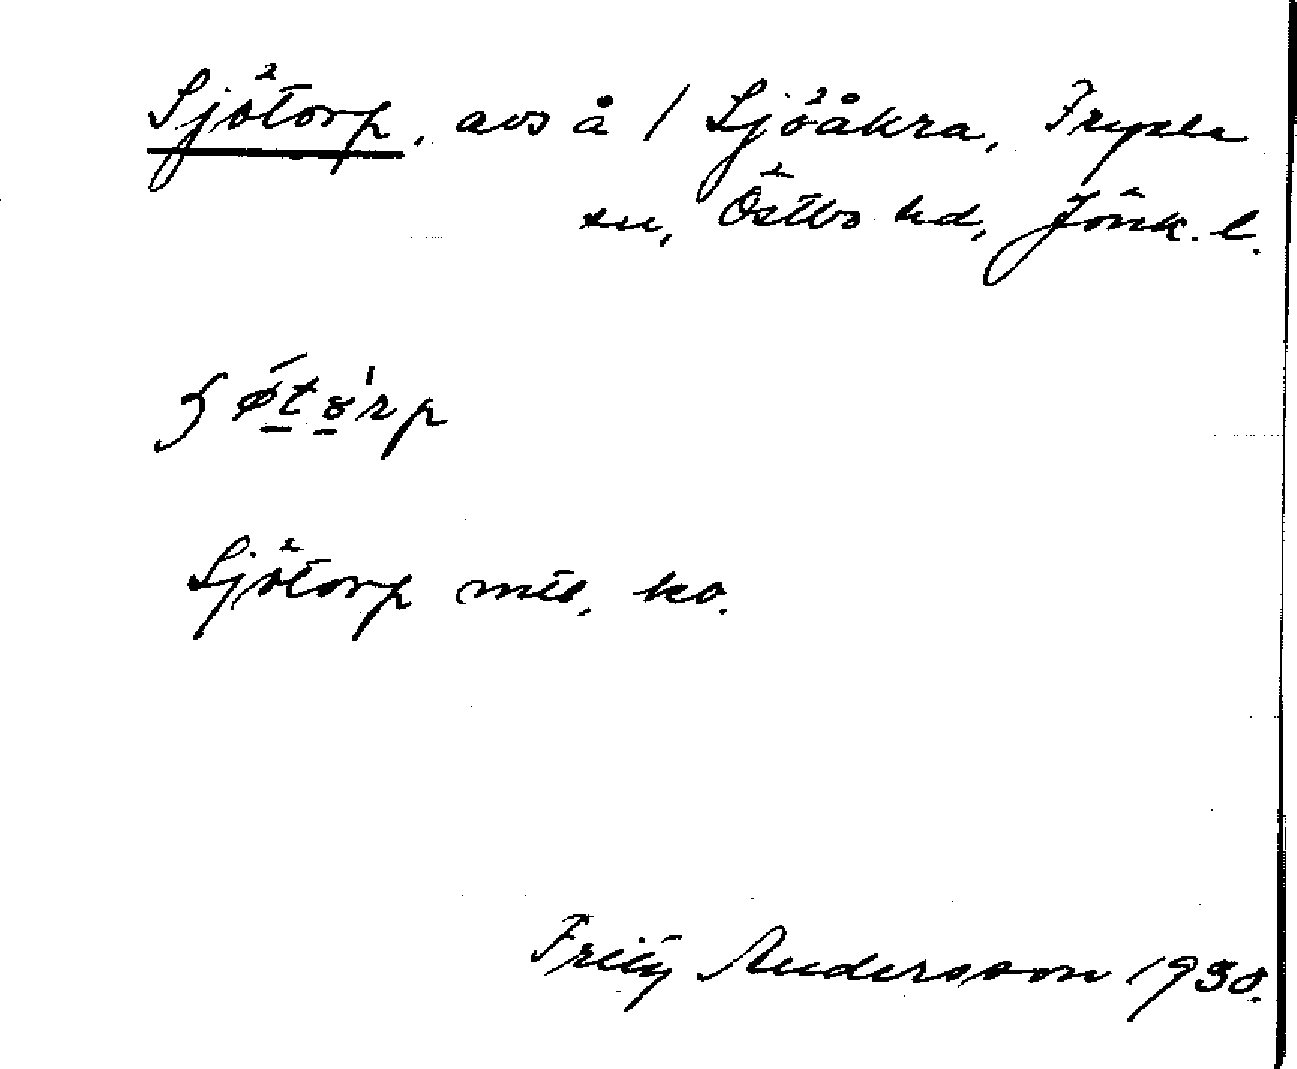 Sjötorp, avs å 1 Sjöåkra, Fryele
sn, Östbo hd, Jönk. l.
Sjötorp mtl. ko.
Fritz Andersson 1930.